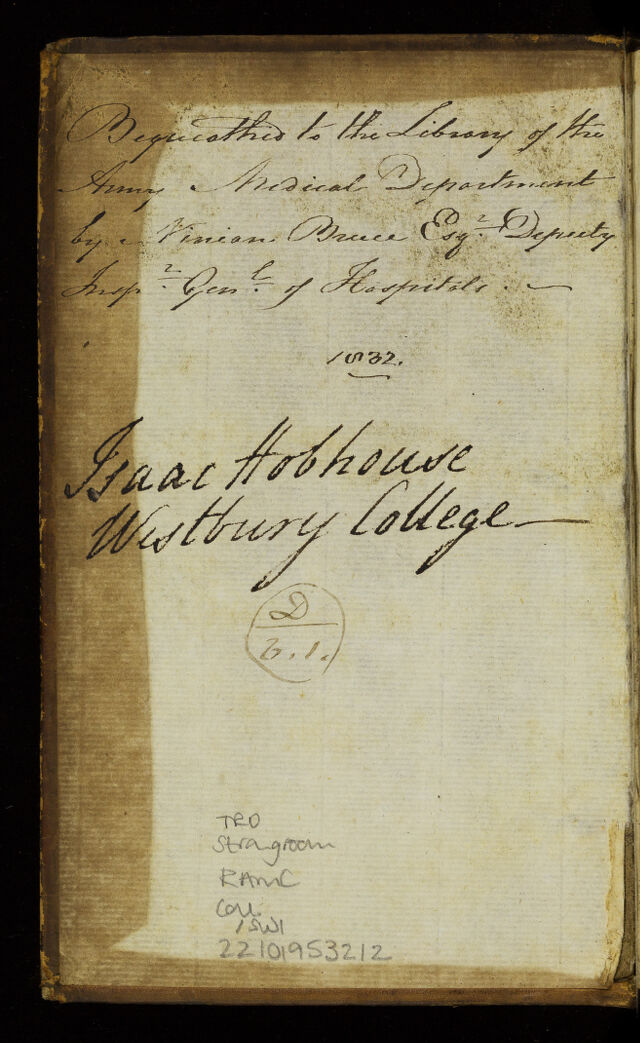 Bequeathed to the Library of the
Army Medical Department
by Ninian Bruce Esqr. Deputy
Inspr. Genl. of Hospitals. —
1832.
Isaac Hobhouse
Westbury College —
D
6.1.
TRO
Strongroom
RAMC
Coll.
/SWI
22101953212